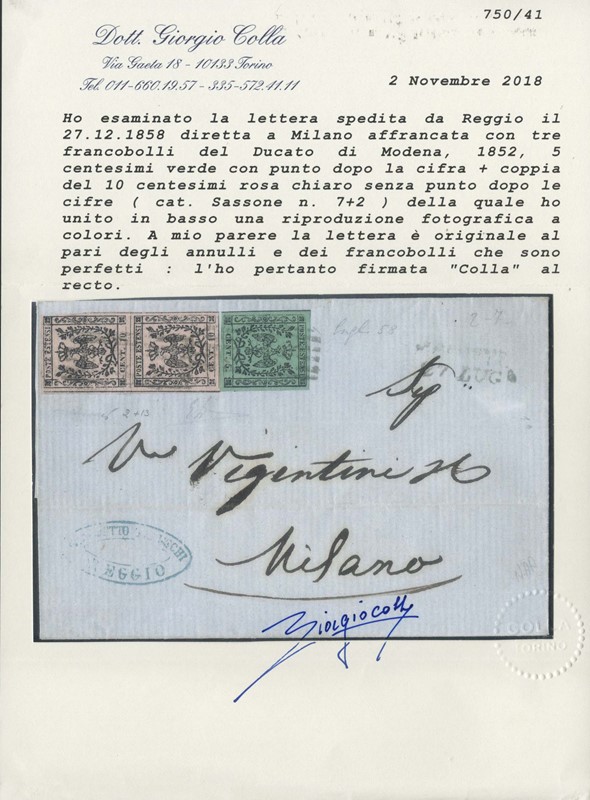 750/41
Dott. Giorgio Colla
Via Gaeta 18 - 10133 Torino
Tel. 011-660.19.57 - 335-572.41.11
2 Novembre 2018
Ho esaminato la lettera spedita da Reggio il
27.12.1858 diretta a Milano affrancata con tre
francobolli del Ducato di Modena, 1852, 5
centesimi verde con punto dopo la cifra + coppia
del 10 centesimi rosa chiaro senza punto dopo le
cifre ( cat. Sassone n. 7+2 ) della quale ho
unito in basso una riproduzione fotografica a
colori. A mio parere la lettera è originale al
pari degli annulli e dei francobolli che sono
perfetti : l'ho pertanto firmata "Colla" al
recto.
POSTE ESTENSI
CENT. 10
POSTE ESTENSI
CENT. 10
58
LUG
2+13
Vigentini
Milano
REGGIO
Giorgio Colla
COLLA
TORINO